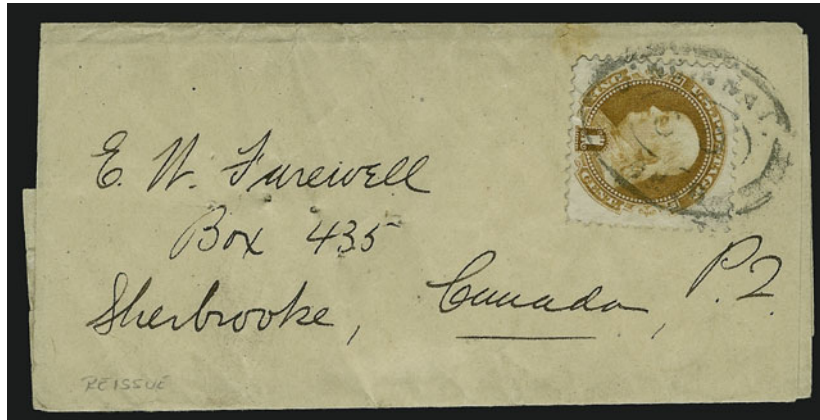 E. W. Farewell
Box 435
Sherbrooke, Canada, P.Q.
REISSUE